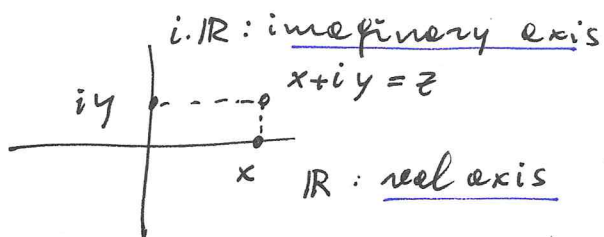 i.ℝ: imaginary axis
iy x+iy=z
x ℝ: real axis